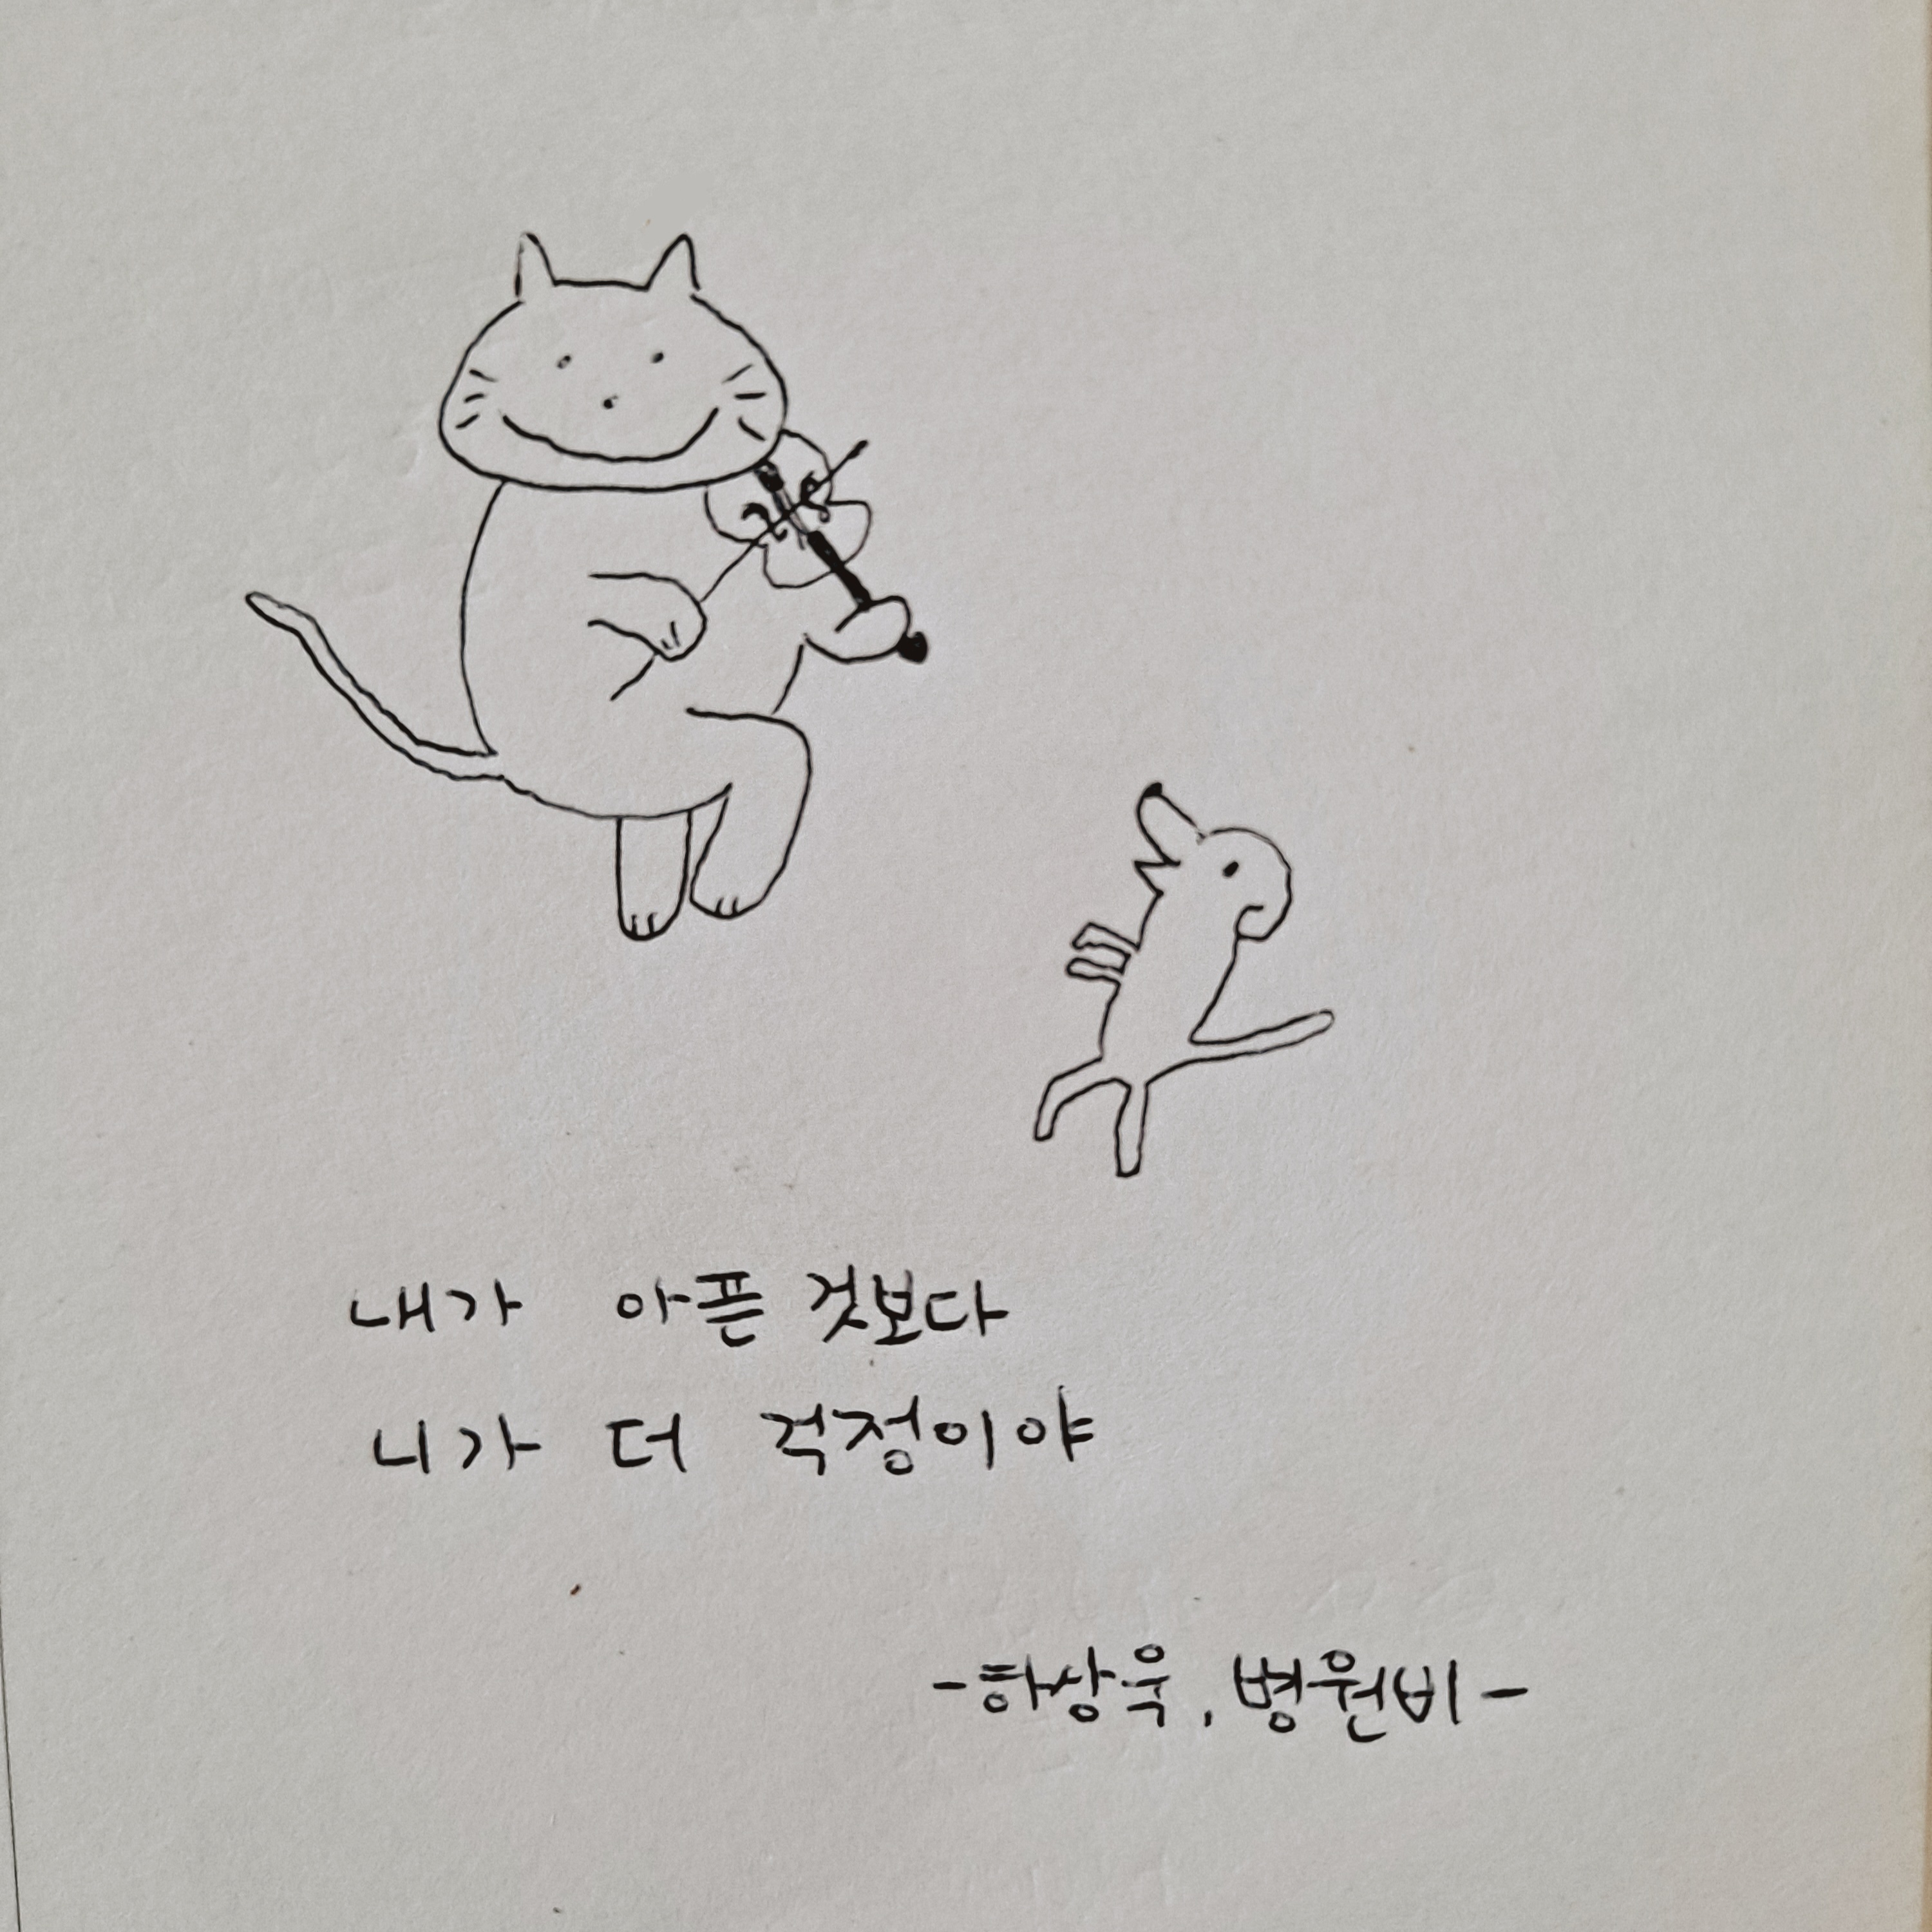 내가 아픈 것보다
니가 더 걱정이야
-하상욱, 병원비-